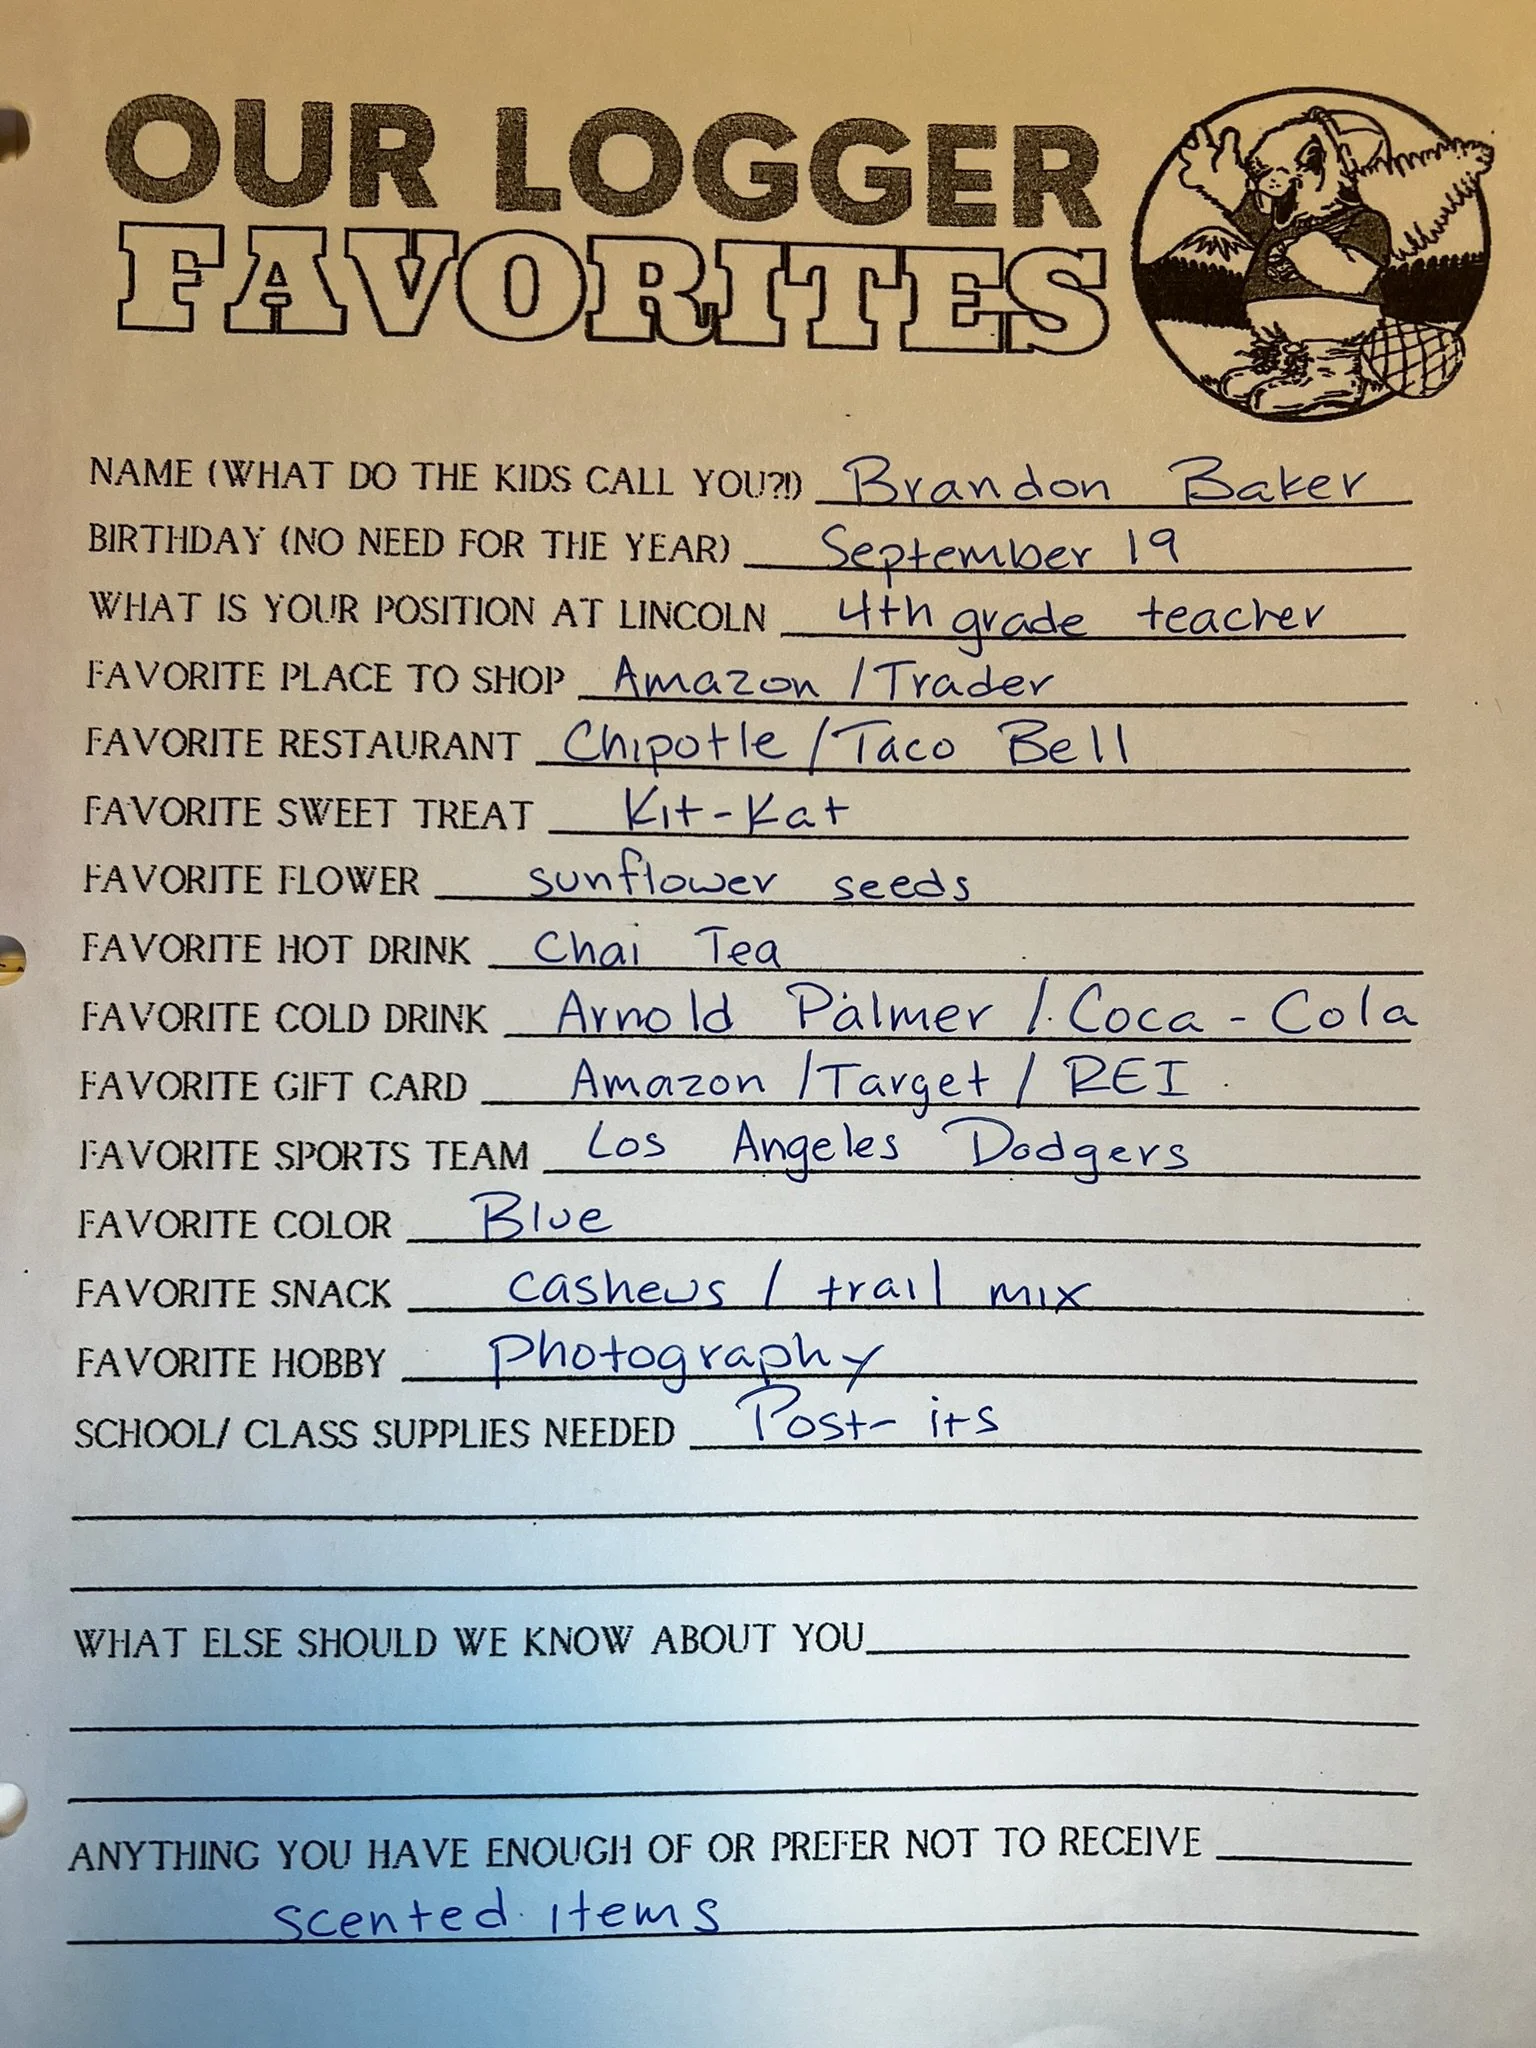 OUR LOGGER
FAVORITES
NAME (WHAT DO THE KIDS CALL YOU?!) Brandon Baker
BIRTHDAY (NO NEED FOR THE YEAR) September 19
WHAT IS YOUR POSITION AT LINCOLN 4th grade teacher
FAVORITE PLACE TO SHOP Amazon / Trader
FAVORITE RESTAURANT Chipotle / Taco Bell
FAVORITE SWEET TREAT Kit-Kat
FAVORITE FLOWER sunflower seeds
FAVORITE HOT DRINK Chai Tea
FAVORITE COLD DRINK Arnold Palmer / Coca-Cola
FAVORITE GIFT CARD Amazon / Target / REI
FAVORITE SPORTS TEAM Los Angeles Dodgers
FAVORITE COLOR Blue
FAVORITE SNACK cashews / trail mix
FAVORITE HOBBY photography
SCHOOL/ CLASS SUPPLIES NEEDED Post-its
WHAT ELSE SHOULD WE KNOW ABOUT YOU
ANYTHING YOU HAVE ENOUGH OF OR PREFER NOT TO RECEIVE
scented items